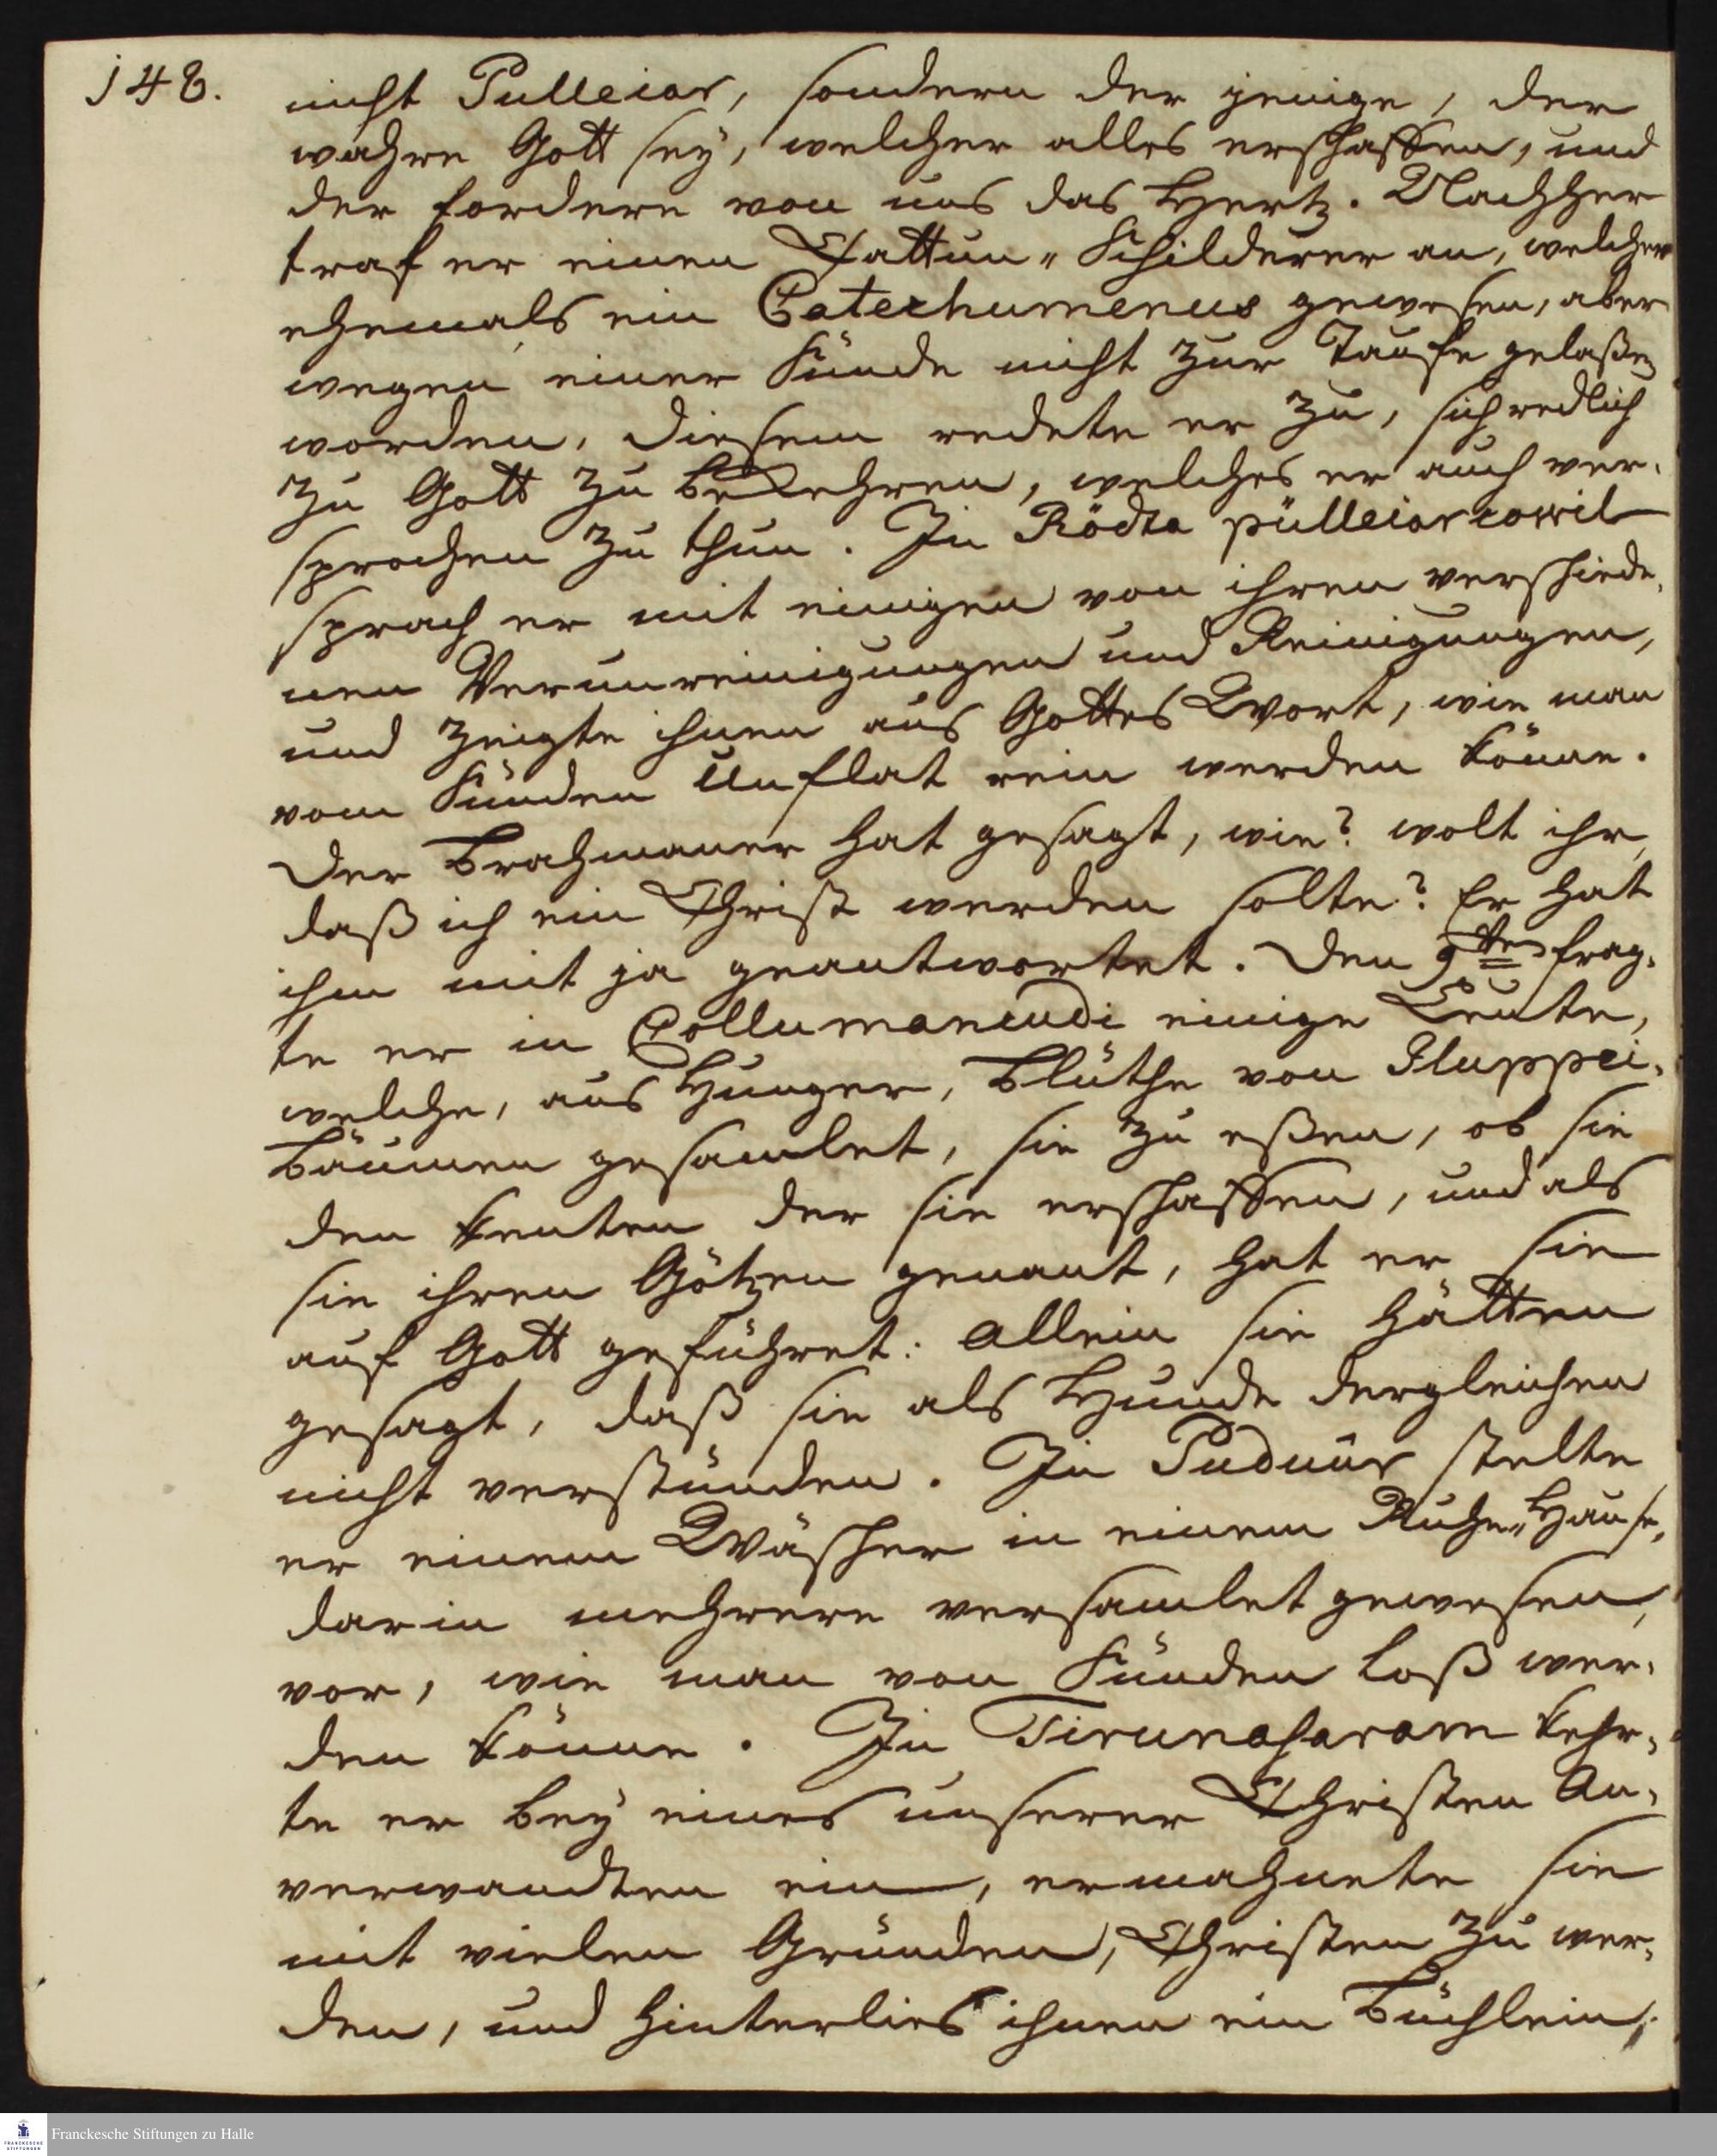 148.
nicht Pulleiar, sondern der jenige, der
wahre Gott sey, welcher alles erschaffen, und
der fordere von uns das Hertz. Nachher
traf er einen Cattun„Schilderer an, welcher
ehemals ein Catechumenus gewesen, aber
wegen einer Sünde nicht zur Taufe gelaßen
worden, diesem redete er zu, sich redlich
zu Gott zu bekehren, welches er auch ver-
sprochen zu thun. In Rödta pülleiarcowil
sprach er mit einigen von ihren verschiede-
nen Verunreinigungen und Reinigungen,
und zeigte ihnen aus Gottes Wort, wie man
vom Sünden Unflat rein werden könne.
Der Brahmaner hat gesagt, wie? wolt ihr,
daß ich ein Christ werden solte? Er hat
ihm mit ja geantwortet. Den 9ten frag-
te er in Collumanendi einige Leute,
welche, aus Hunger, Blüthe von Iluppei-
Bäumen gesamlet, sie zu eßen, ob sie
den kenten der sie erschaffen, und als
sie ihren Götzen genant, hat er sie
auf Gott geführet: allein sie hätten
gesagt, daß sie als Hunde dergleichen
nicht verstünden. In Puduûr stelte
er einem Wäscher in einem Ruhe„Hause,
darin mehrere versamlet gewesen,
vor, wie man von Sünden loß wer-
den könne. In Tirunasaram kehr-
te er bey eines unserer Christen An-
verwandten ein, ermahnete sie
mit vielen Gründen, Christen zu wer-
den, und hinterlies ihnen ein Büchlein,
Franckesche Stiftungen zu Halle